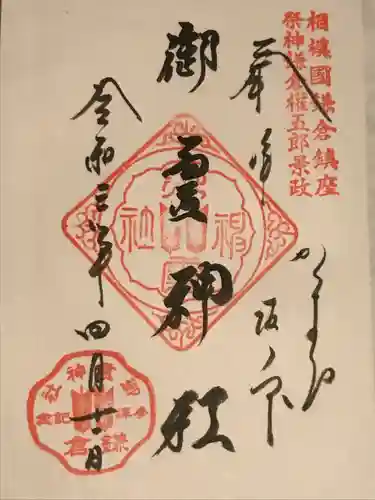 相模國鎌倉鎮座
祭神鎌倉権五郎景政
奉拝
かまくら
坂ノ下
御霊神社
令和三年四月十一日